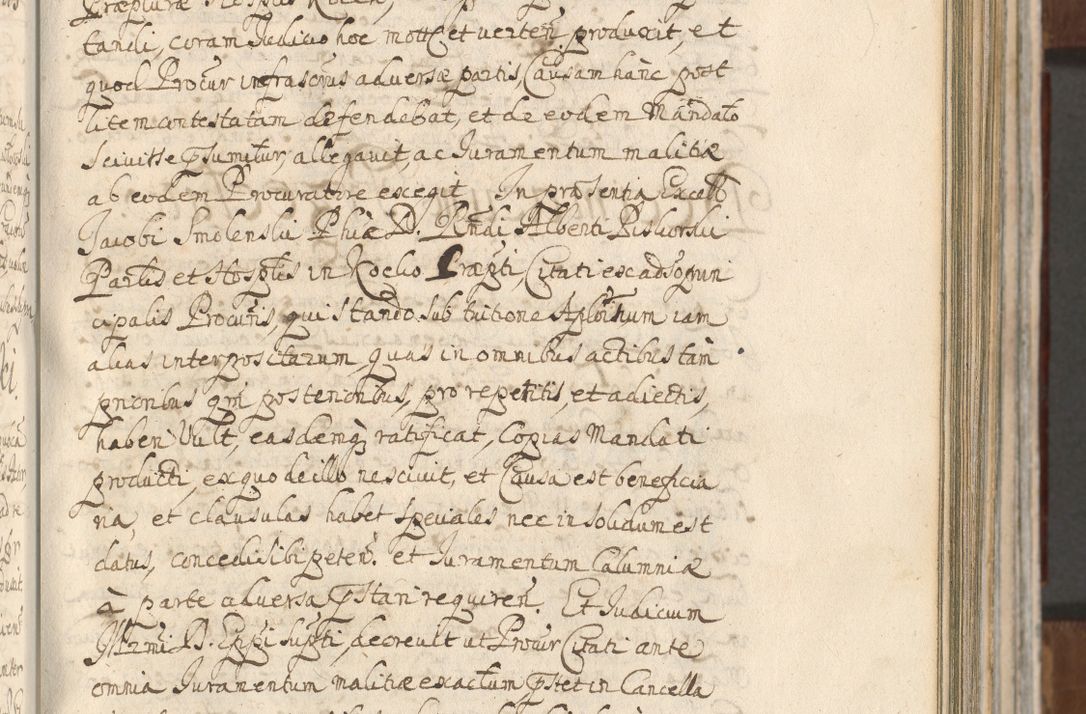 tandi, coram Judicio hoc mott et verteñ. produxit, et
quod Procur infrascrius adversæ partis, Causam hanc post
litem contestatam defendebat, et de eodem Mandato
scivisse psumitur, allegavit, ac Juramentum malitiæ
ab eodem Procuratore exegit In præsentia Excell
Jacobi Smolenski Phiæ D. Rndi Alberti Piskorski
et Hosptis in Kocko Præpti, Citati ex adso prin
cipalis Procuris, qui stando sub tuitione Aplõnum iam
alias interpositarum, quas in omnibus actibus tam
prioribus qm posterioribus, pro repetitis, et adiectis,
haberi Vult, easdemq ratificat, Copias Mandati
producti, ex quo de illo nescivit, et Causa est beneficia
ria, et clausulas habet speciales nec in solidum est
datus, concedi sibi peteñ. et Juramentum Calumniæ
à parte adversa pstari requireñ. Et Judicium
D. Eppi supti, decrevit ut Procur Citati ante
omnia Juramentum malitiæ exactum pstet in Cancella